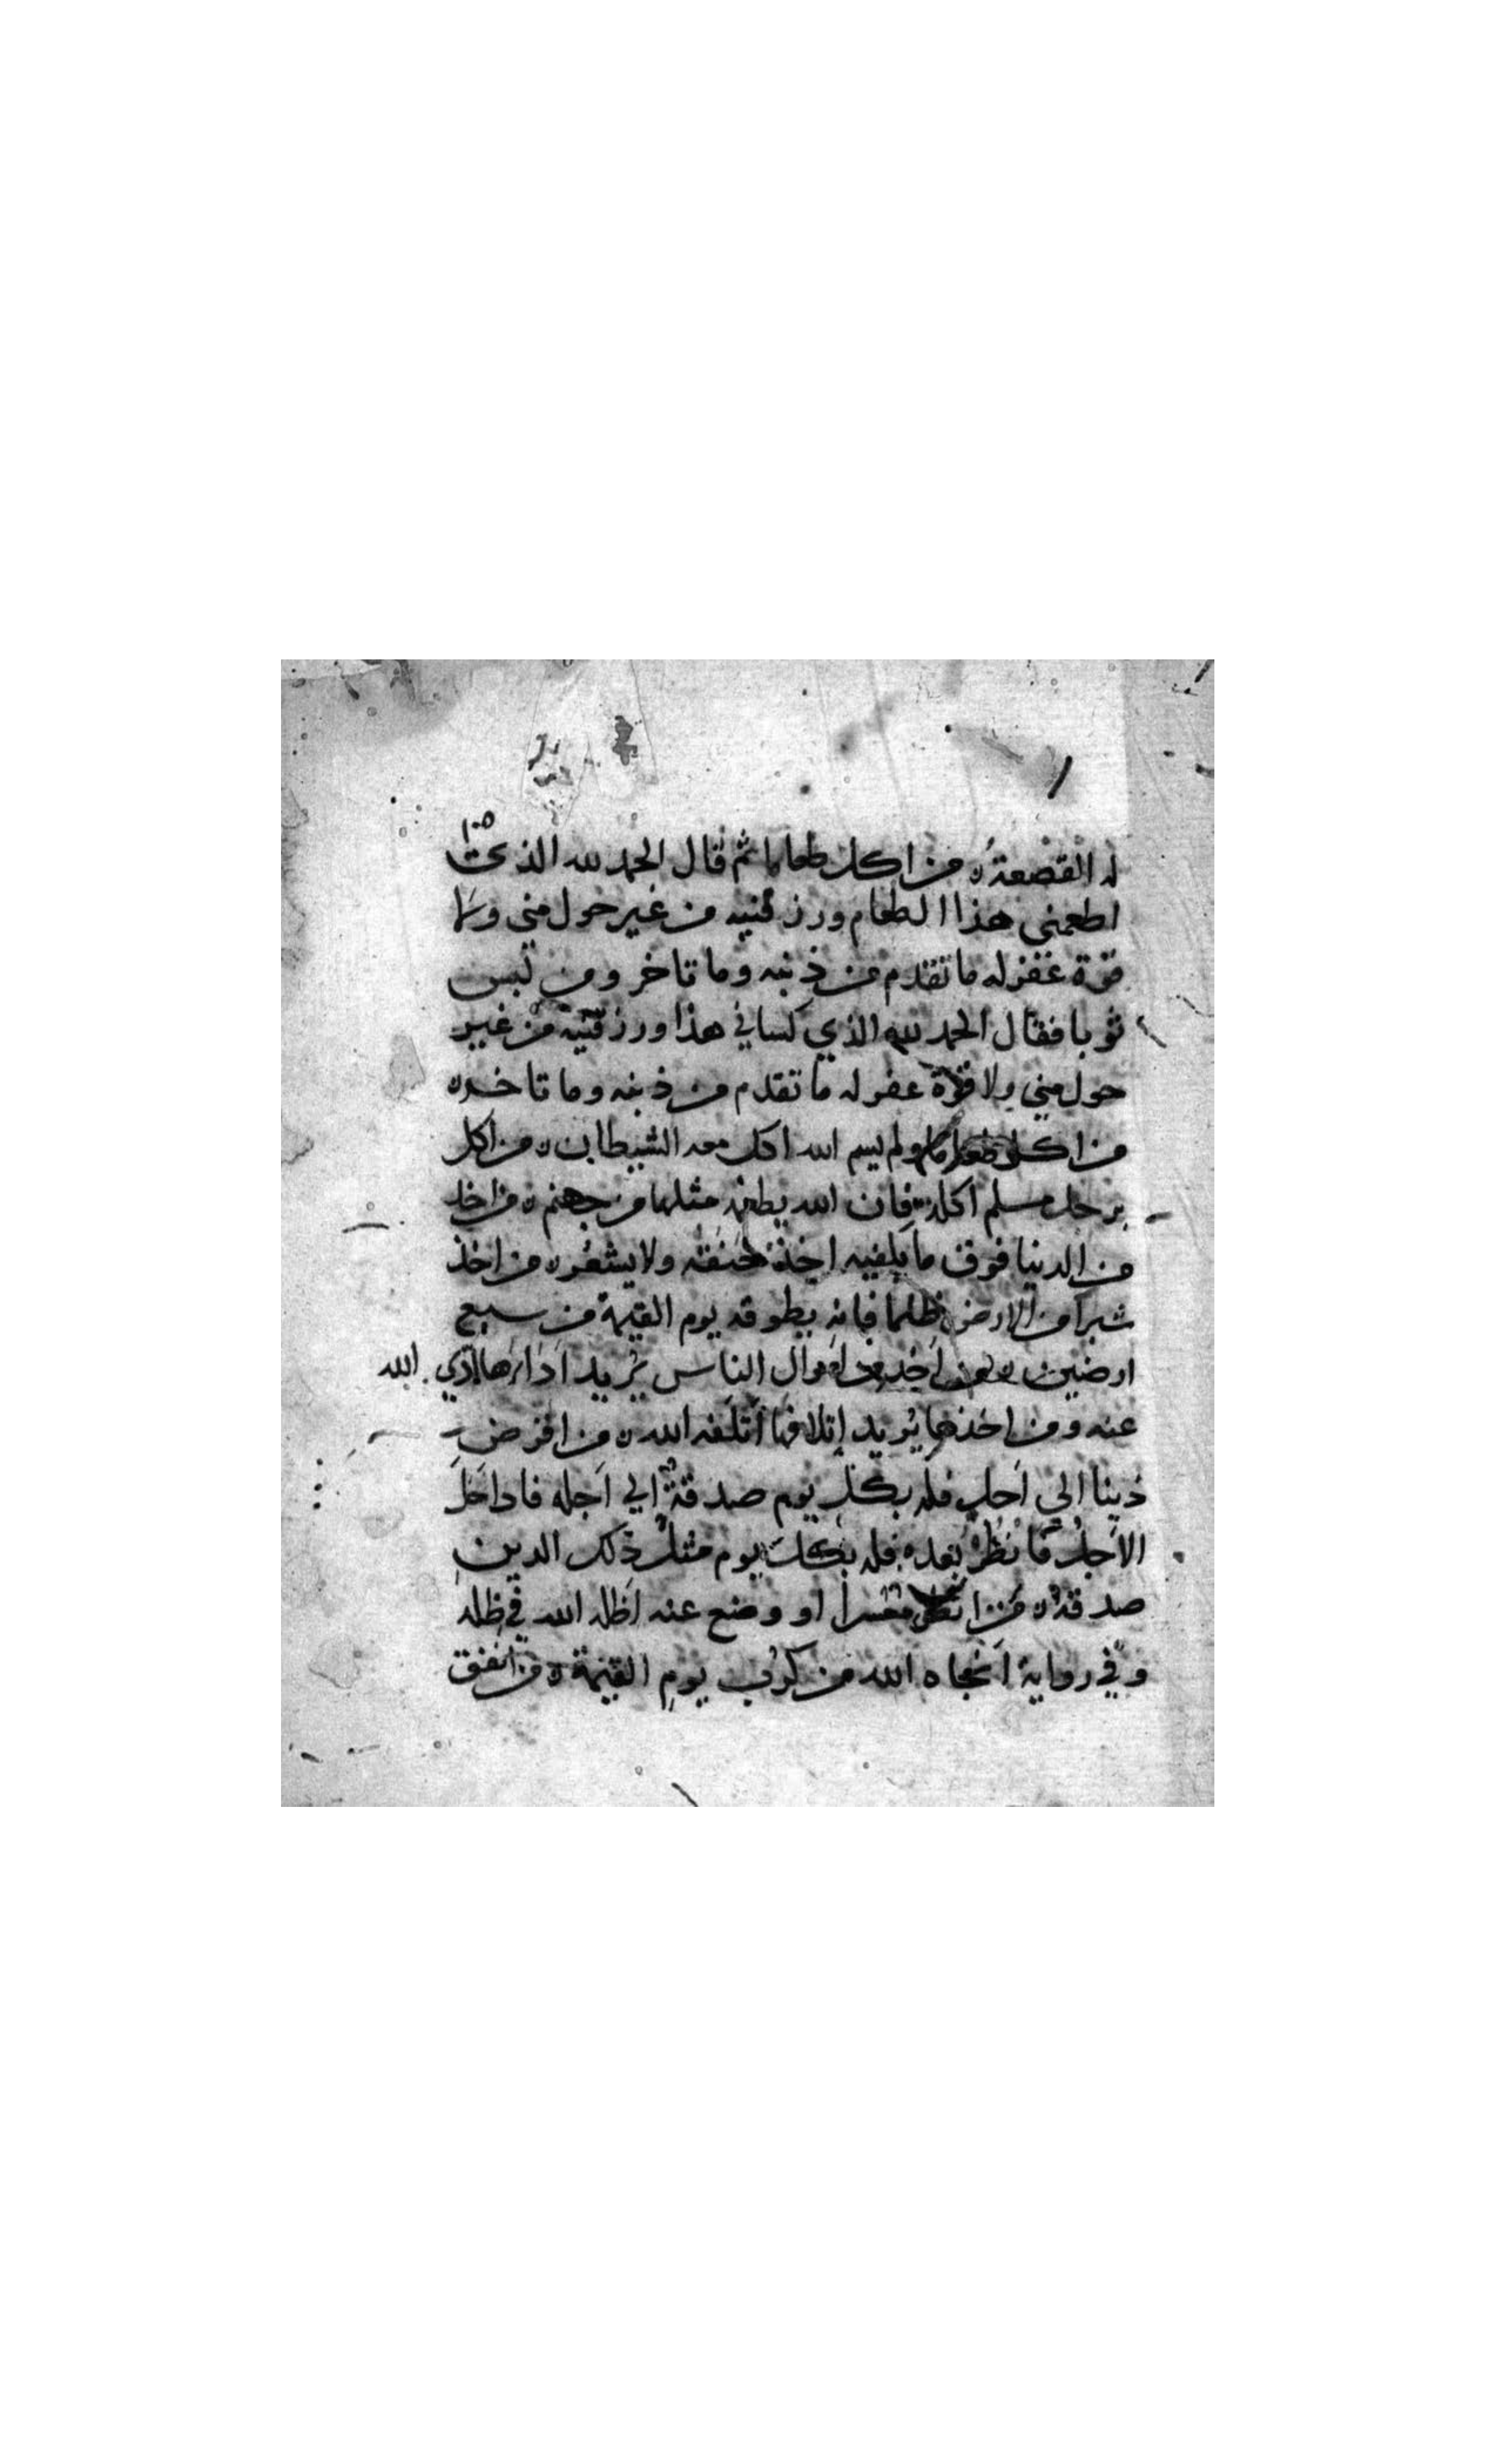 له القصعة ه من اكل طعاما ثم قال الحمد لله الذي
اطعمني هذا الطعام ورزقنيه من غير حول مني ولا
قوة غفر له ما تقدم من ذنبه وما تاخر ومن لبس
ثوبا فقال الحمد لله الذي كساني هذا ورزقنيه من غير
حول مني ولا قوة غفر له ما تقدم من ذنبه وما تاخر ه
من اكل طعاما ولم يسم الله اكل معه الشيطان ه من اكل
برجل مسلم اكلة فان الله يطعمه مثلها من جهنم ه من اخذ
من الدنيا فوق ما يكفيه اخذ حتفه ولا يشعر ه من اخذ
شبرا من الارض ظلما فانه يطوقه يوم القيمة من سبع
ارضين ه من اخذ اموال الناس يريد اداءها ادي الله
عنه ومن اخذها يريد إتلافها أتلفه الله ه من اقرض
دينا الي اجل فله بكل يوم صدقة الي اجله فاذا حل
الاجل فانظره بعده فله بكل يوم مثل ذلك الدين
صدقة ه من انظر معسرا او وضع عنه اظله الله في ظله
وفي رواية انجاه الله من كرب يوم القيمة ه من انفق